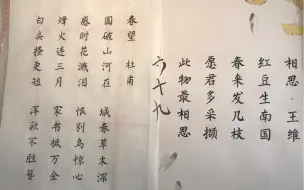 相思·王维
红豆生南国
春来发几枝
愿君多采撷
此物最相思
六十九
春望 杜甫
国破山河在 城春草木深
感时花溅泪 恨别鸟惊心
烽火连三月 家书抵万金
白头搔更短 浑欲不胜簪